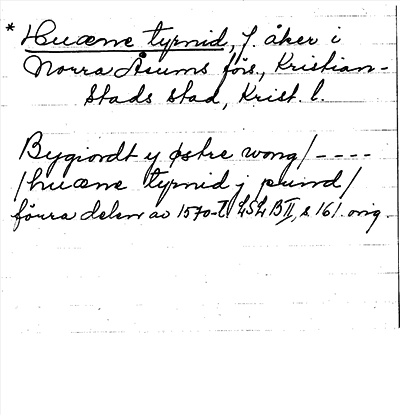 * Huæne tyrnid, f. åker i
Norra Åsums förs., Kristian-
stads stad, Krist. l.
Bygiordt y østre wong / ----
/ huæne tyrnid j pund /
förra delen av 1570-t. LSLB II, s 161. orig.